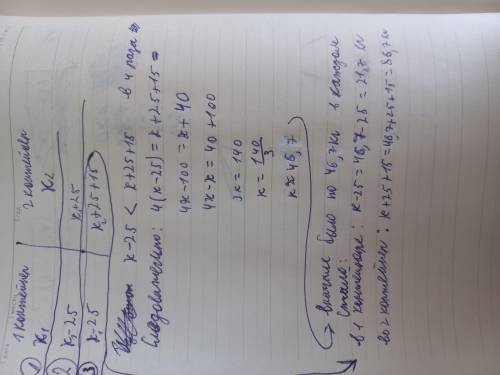 1 контейнер 2 контейнер
① x₁ x₂
② x₁-25 x₂+25
③ x₁-25 x₂+25+15
x-25 < x+25+15 в 4 раза ⇒
Следовательно: 4(x-25)=x+25+15
4x-100=x+40
4x-x=40+100
3x=140
x=140/3
x≈46,7
Вначале было по 46,7 кг в каждом
Стало:
в 1 контейнере: x-25=46,7-25=21,7 кг
во 2 контейнере: x+25+15=46,7+25+15=86,7 кг